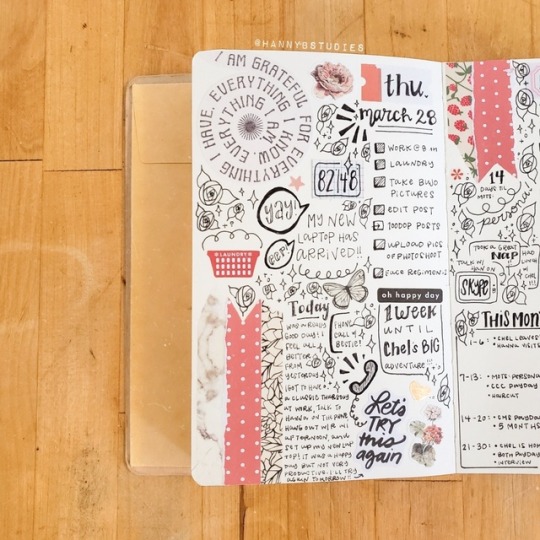 @HANNYBSTUDIES
I AM GRATEFUL FOR EVERYTHING I HAVE, EVERYTHING I KNOW, EVERYTHING I AM.
thu.
march 28
WORK @ 8 AM
LAUNDRY
TAKE BUJO
PICTURES
EDIT POST
100DOP POSTS
UPLOAD PICS
OF PHOTOSHOOT
FACE REGIMEN
82|48
yay!
MY NEW
LAPTOP HAS
ARRIVED!!
LAUNDRY
Today
WAS A
GOOD DAY! I
FEEL ALL
BETTER
FROM
YESTERDAY.
I GOT TO HAVE
A CLASSIC THURSDAY
AT WORK, TALK TO
HANNA ON THE PHONE
HANG OUT W/
AFTERNOON, AND
SET UP MY NEW LAP
TOP! IT WAS A HAPPY
DAY BUT NOT VERY
PRODUCTIVE. I'LL TRY
AGAIN TOMORROW!!
PHONE
CALL W/
BESTIE!
oh happy day
1 WEEK
UNTIL
Chel's BIG
ADVENTURE
Let's
TRY
this
again
14
DAYS TIL
MOTS:
persona!
TOOK A GREAT
NAP
TALK W/
HAN ON
SKYPE
HAD
THIS MON
1-6:
CHEL LEAVES
HANNA VISITS
7-13:
MOTS: PERSONA
CCC PAYDAY
HAIRCUT
14-20:
CMB PAYDAY
5 MONTHS
21-30:
CHEL IS HOME
BOTH PAYDAY
INTERVIEW